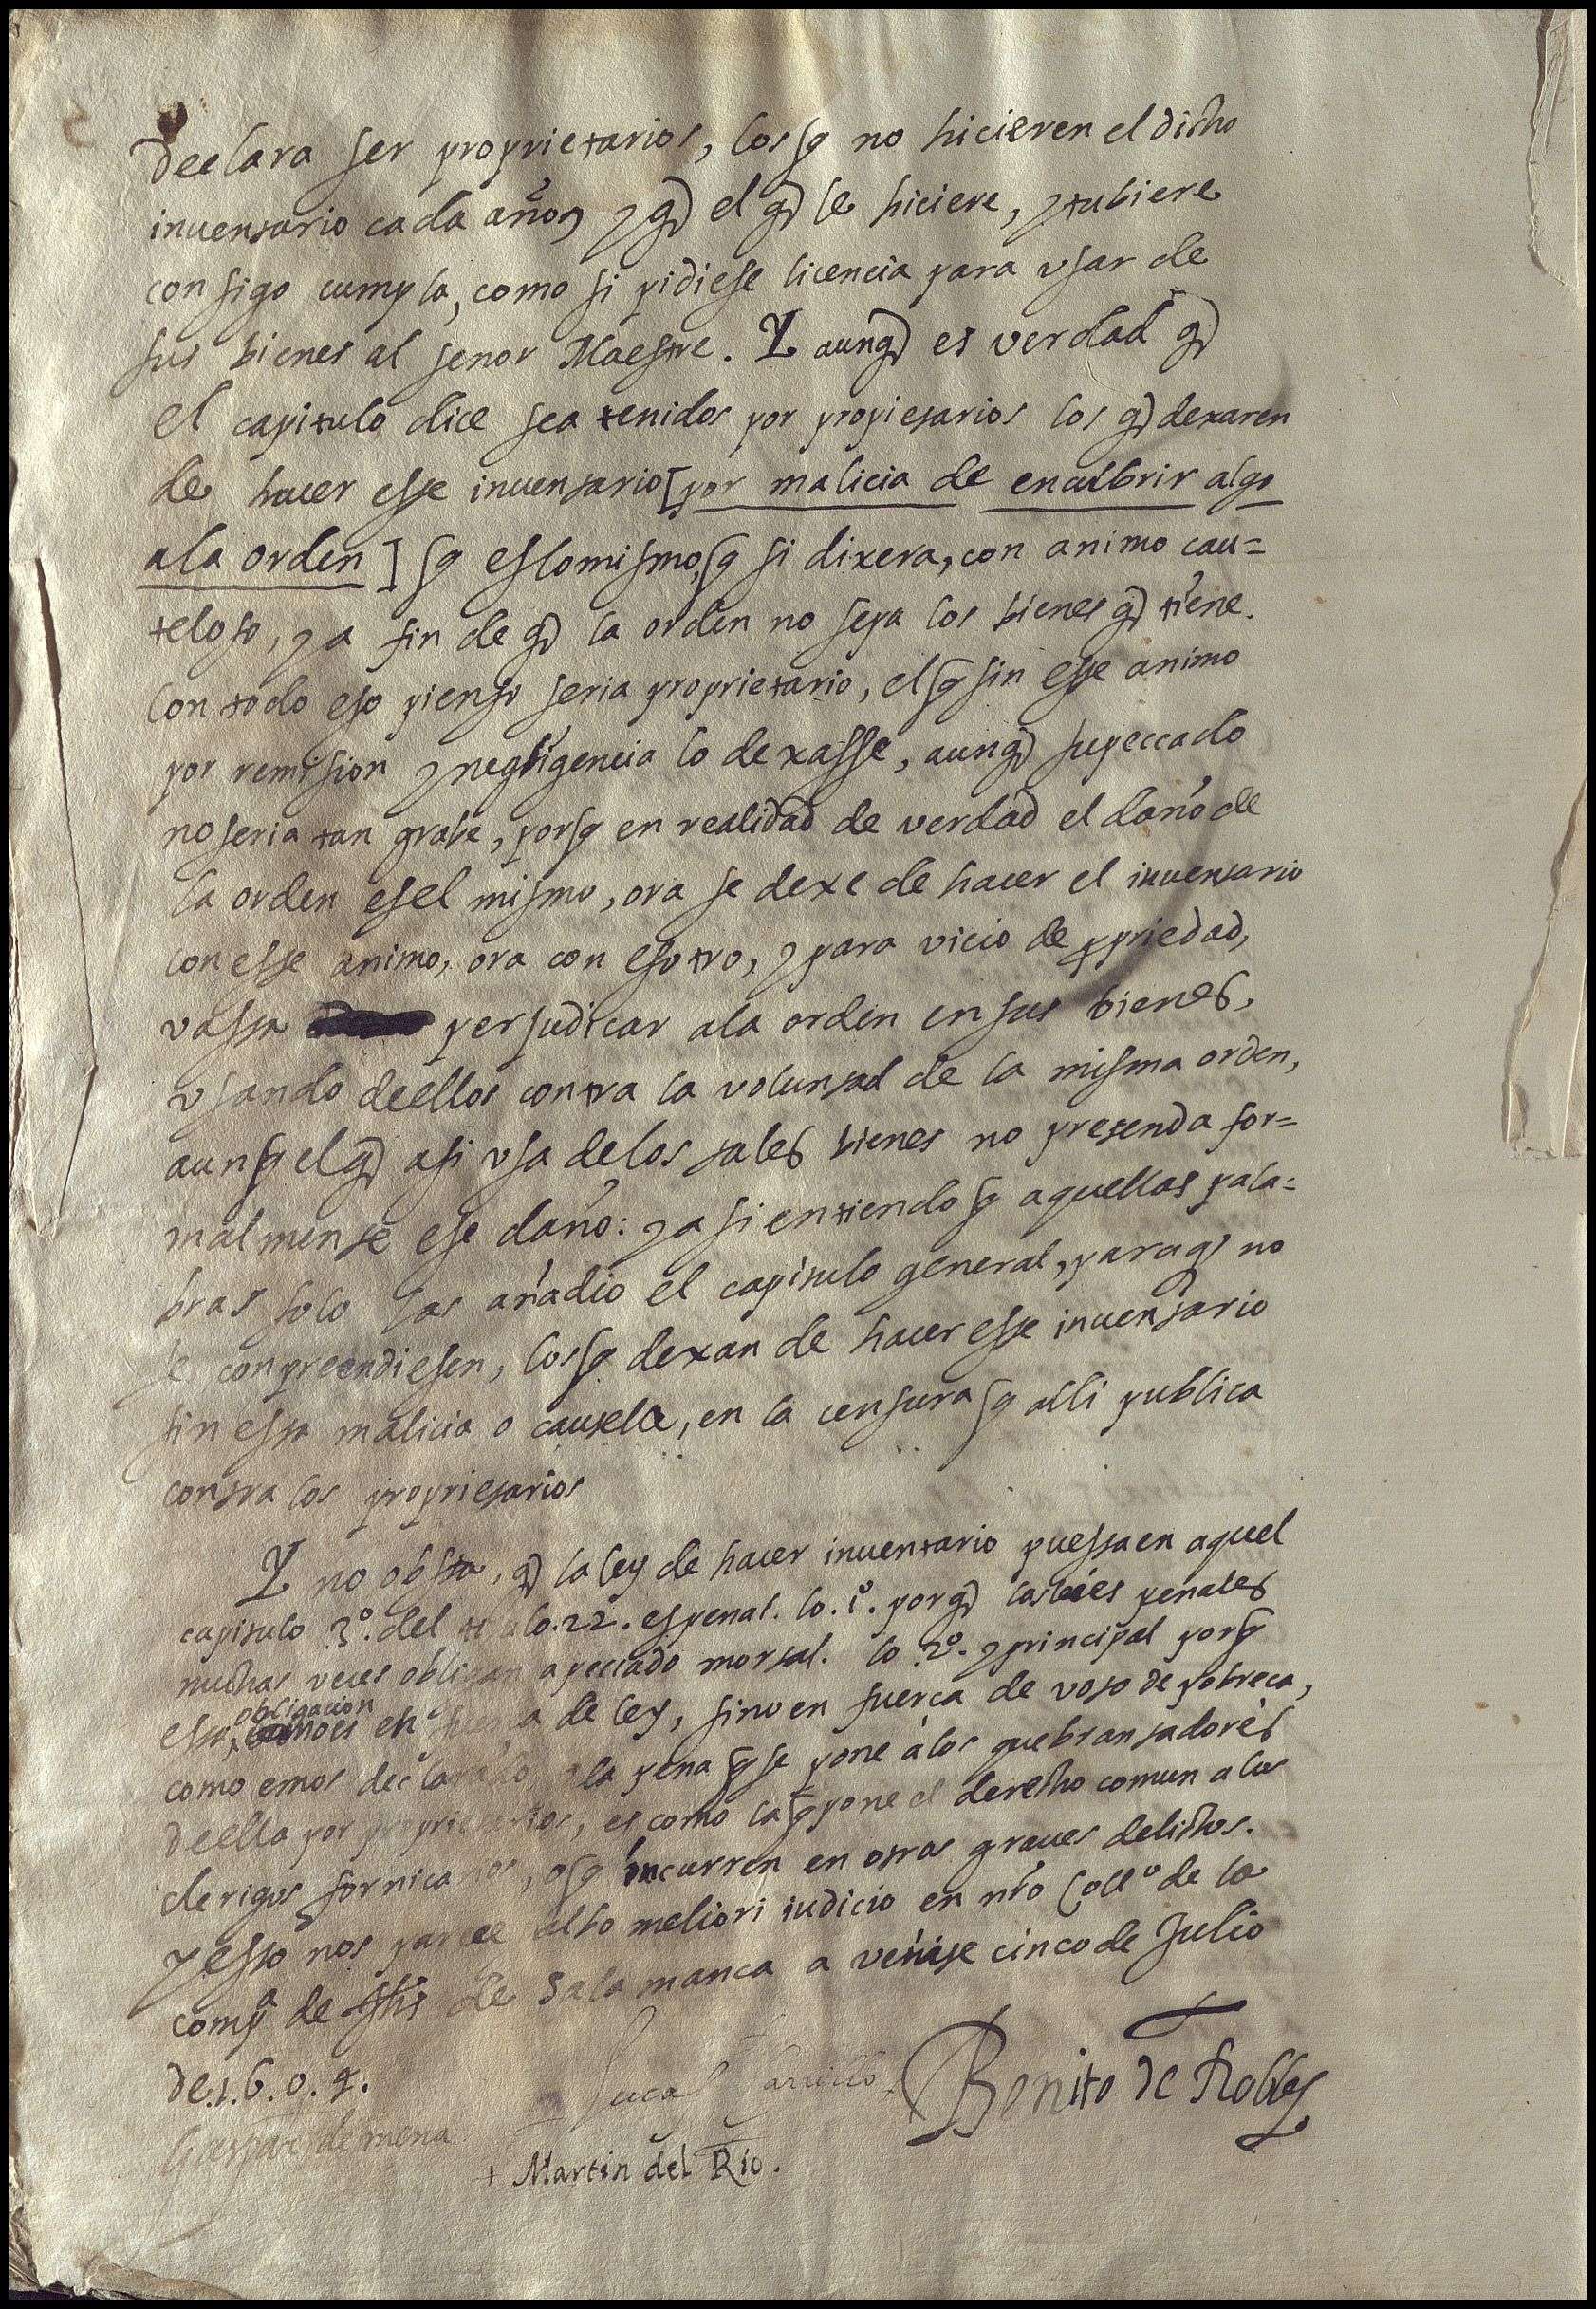 declara ser proprietarios, los q no hicieren el dicho
inuentario cada año, y q el q le hiciere, y tubiere
consigo cumpla, como si pidiese licencia para vsar de
sus bienes al señor Maestre. Y aunq es verdad q
el capitulo dice sea tenidos por propietarios los q dexaren
de hacer esse inuentario [por malicia de encubrir algo
a la orden] q es lo mismo, q si dixera, con animo cau=
teloso, y a fin de q la orden no sepa los bienes q tiene.
Con todo eso pienso seria proprietario, el q sin esse animo
por remision y negligencia lo dexasse, aunq su peccado
no seria tan grabe, porq en realidad de verdad el daño de
la orden es el mismo, ora se dexe de hacer el inuentario
con esse animo, ora con esotro, y para vicio de ppriedad,
vasta perjudicar a la orden en sus bienes,
vsando de ellos contra la voluntad de la misma orden,
aunq el q asi vsa de los tales bienes no pretenda for=
malmente ese daño: y asi entiendo q aquellas pala=
bras solo las añadio el capitulo general, para q no
se conpreendiesen, los q dexan de hacer esse inuentario
sin essa malicia o cautela, en la censura q alli publica
contra los proprietarios
Y no obsta, q la ley de hacer inuentario puesta en aquel
capitulo 3º. del titulo. 22. es penal. lo. 1º. porq las leies penales
muchas veces obligan a peccado mortal. lo 2º. y principal porq
esta obligacion no es en fuerça de ley, sino en fuerça de voto de pobreça,
como emos declarado, a la pena q se pone a los quebrantadores
de ella por proprietarios, es como la q pone el derecho comun a los
clerigos fornicarios, o q incurren en otros graues delictos.
y esto nos parece salbo meliori iudicio en nro Collº de la
compª de Jhs de Salamanca a veinte cinco de Julio
de.1.6.0.4.
Lucas Carrillo
Benito de Robles
Gaspar de mena
+ Martin del Rio.